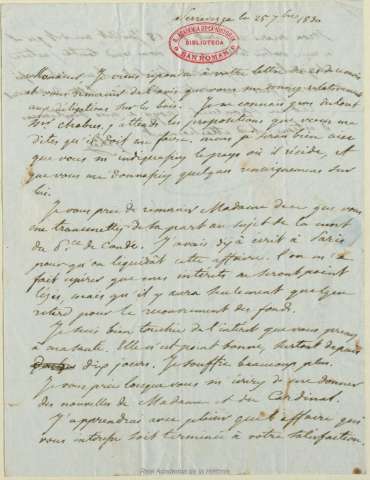 Serrenze le 25 7bre 1830
R. ACADEMIA DE LA HISTORIA
BIBLIOTECA
SAN ROMAN
Monsieur, Je viens répondre à votre lettre du 21 de ce mois
et vous remercier de l'avis que vous me donnez relativement
aux obligations sur les bois. Je ne connais point du tout
Mr chabus, j'attends les propositions que vous me
dites qu'il doit me faire, mais je serai bien aise
que vous m'indiquassiez le pays où il réside, et
que vous me donnassiez quelques renseignemens sur
lui.
Je vous prie de remercier Madame de ce que vous
me transmettez de sa part au sujet de la mort
du de Conde. J'avais déjà écrit à Paris
pour qu'on liquidât cette affaire. l'on m'a
fait espérer que nos interets ne seront point
lézés, mais qu'il y aura seulement quelque
retard pour le recouvrement des fonds.
Je suis bien touchée de l'intérêt que vous prenez
à ma santé. Elle n'est point bonne, surtout depuis
dix jours. Je souffre beaucoup plus.
Je vous prie lorsque vous m'écrirez de me donner
des nouvelles de Madame et du Cardinal.
J'apprendrai avec plaisir que l'affaire qui
vous intéresse soit terminée à votre satisfaction.
Real Academia de la Historia